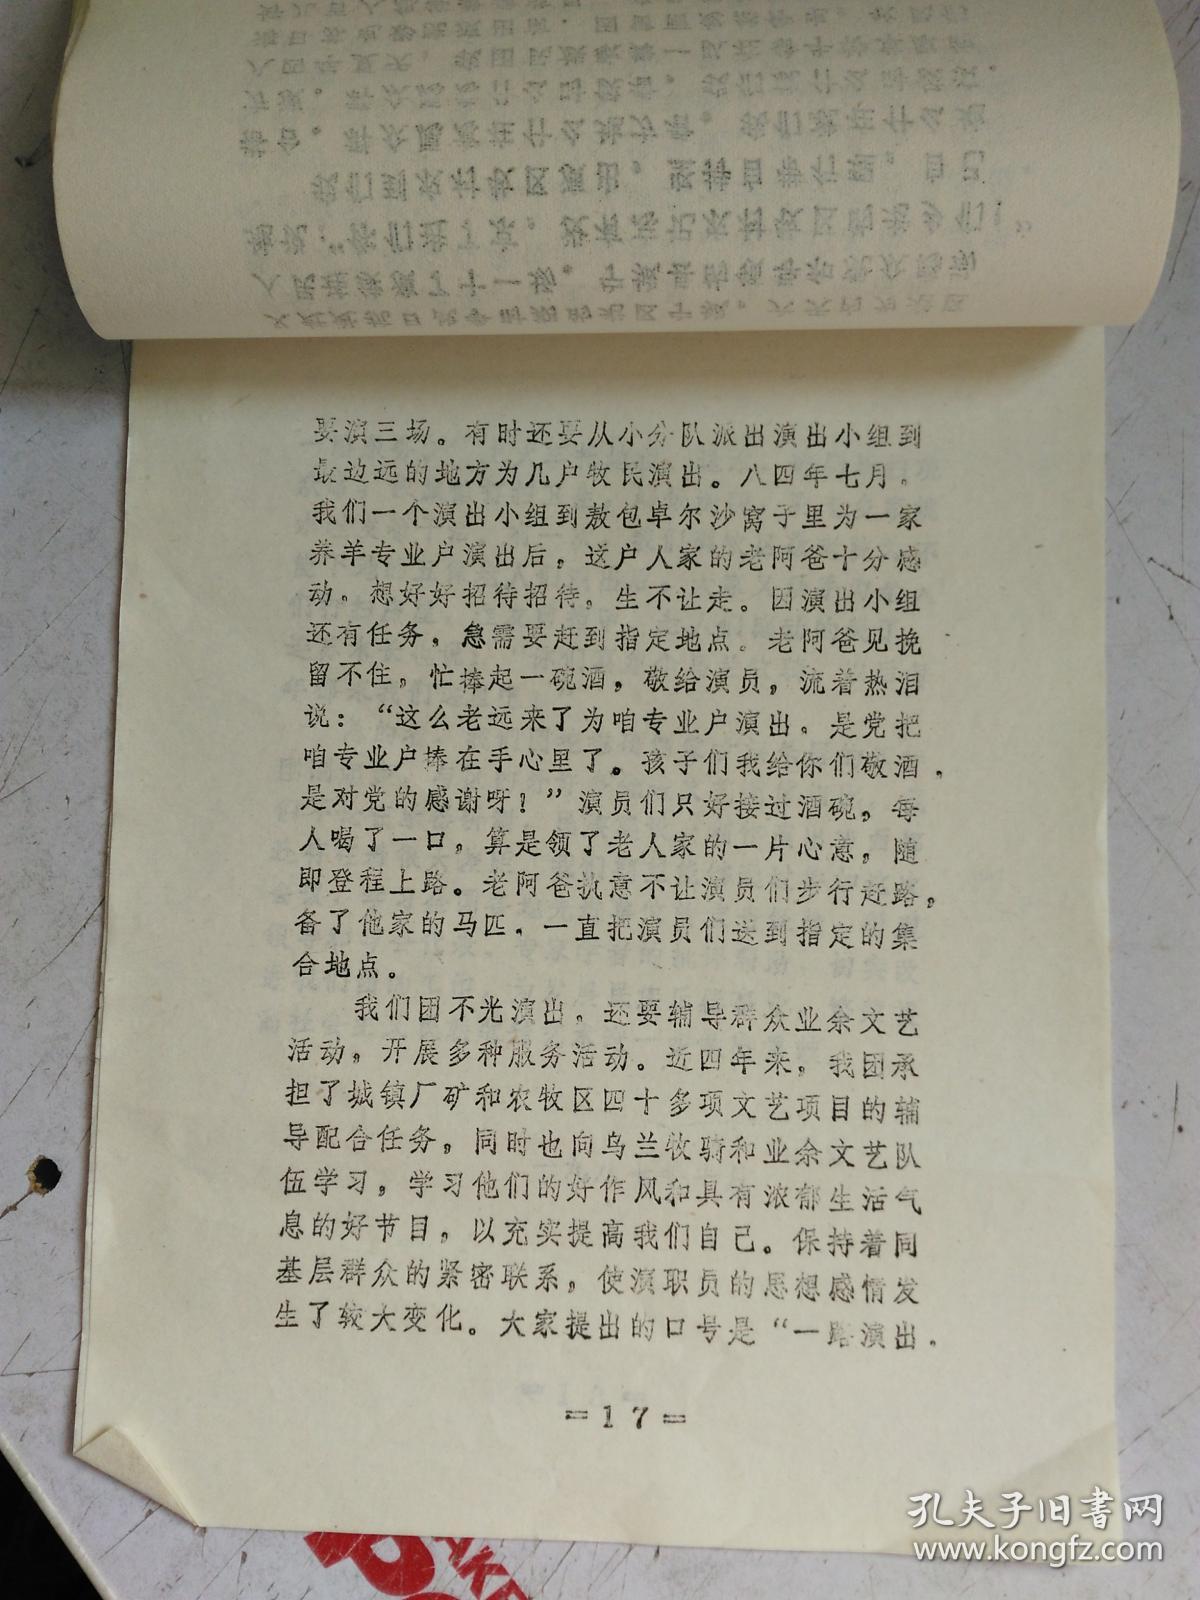 要演三场。有时还要从小分队派出演出小组到
最边远的地方为几户牧民演出。八四年七月，
我们一个演出小组到敖包卓尔沙窝子里为一家
养羊专业户演出后，这户人家的老阿爸十分感
动，想好好招待招待，生不让走。因演出小组
还有任务，急需要赶到指定地点。老阿爸见挽
留不住，忙捧起一碗酒，敬给演员，流着热泪
说：“这么老远来了为咱专业户演出，是党把
咱专业户捧在手心里了。孩子们我给你们敬酒，
是对党的感谢呀！”演员们只好接过酒碗，每
人喝了一口，算是领了老人家的一片心意，随
即登程上路。老阿爸执意不让演员们步行赶路，
备了他家的马匹，一直把演员们送到指定的集
合地点。
我们团不光演出，还要辅导群众业余文艺
活动，开展多种服务活动。近四年来，我团承
担了城镇厂矿和农牧区四十多项文艺项目的辅
导配合任务，同时也向乌兰牧骑和业余文艺队
伍学习，学习他们的好作风和具有浓郁生活气
息的好节目，以充实提高我们自己。保持着同
基层群众的紧密联系，使演职员的思想感情发
生了较大变化。大家提出的口号是“一路演出，
=17=
孔夫子旧书网
www.kongfz.com